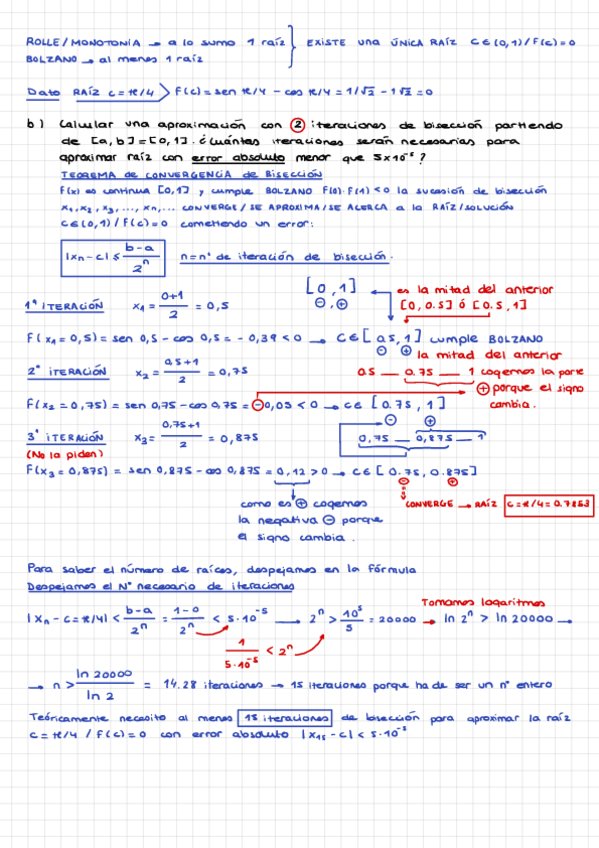 ROLLE/MONOTONÍA → a lo sumo 1 raíz } EXISTE una ÚNICA RAÍZ C∈(0,1)/F(c)=0
BOLZANO → al menos 1 raíz
Dato RAÍZ c=π/4 > F(c)=sen π/4 - cos π/4 = 1/√2 - 1√2 = 0
b) Calcular una aproximación con 2 iteraciones de bisección partiendo
de [a,b]=[0,1]. ¿Cuántas iteraciones serán necesarias para
aproximar raíz con error absoluto menor que 5×10⁻⁵?
TEOREMA DE CONVERGENCIA DE BISECCIÓN
F(x) es continua [0,1] y cumple BOLZANO F(0)·F(1)<0 la sucesión de bisección
x₁,x₂,x₃,...,xₙ,... CONVERGE/SE APROXIMA/SE ACERCA a la RAÍZ/SOLUCIÓN
C∈(0,1)/F(c)=0 cometiendo un error:
|xₙ-c| ≤ (b-a)/2ⁿ n=nº de iteración de bisección.
[0,1] es la mitad del anterior
⊖,⊕ [0,0.5] ó [0.5,1]
1ª ITERACIÓN x₁ = (0+1)/2 = 0,5
F(x₁=0,5) = sen 0,5 - cos 0,5 = -0,39 < 0 → C∈[0,5,1] cumple BOLZANO
⊖ ⊕ la mitad del anterior
2ª ITERACIÓN x₂ = (0,5+1)/2 = 0,75 0.5 — 0.75 — 1 cogemos la parte
⊕ porque el signo
F(x₂=0,75) = sen 0,75 - cos 0,75 = -0,05 < 0 → C∈[0.75,1] cambia.
⊖ ⊕
3ª ITERACIÓN x₃ = (0,75+1)/2 = 0,875 0,75 — 0,875 — 1
(No la piden)
F(x₃=0,875) = sen 0,875 - cos 0,875 = 0,12 > 0 → C∈[0.75,0.875]
⊖ ⊕
como es ⊕ cogemos CONVERGE → RAÍZ c=π/4=0.7853
la negativa ⊖ porque
el signo cambia.
Para saber el número de raíces, despejamos en la fórmula
Despejamos el Nº necesario de iteraciones
Tomamos logaritmos
|xₙ-c=π/4| < (b-a)/2ⁿ = (1-0)/2ⁿ < 5·10⁻⁵ → 2ⁿ > 10⁵/5 = 20000 → ln 2ⁿ > ln 20000 →
1/(5·10⁻⁵) < 2ⁿ
→ n > ln 20000/ln 2 = 14.28 iteraciones → 15 iteraciones porque ha de ser un nº entero
Teóricamente necesito al menos 15 iteraciones de bisección para aproximar la raíz
c=π/4 / F(c)=0 con error absoluto |x₁₅-c| < 5·10⁻⁵